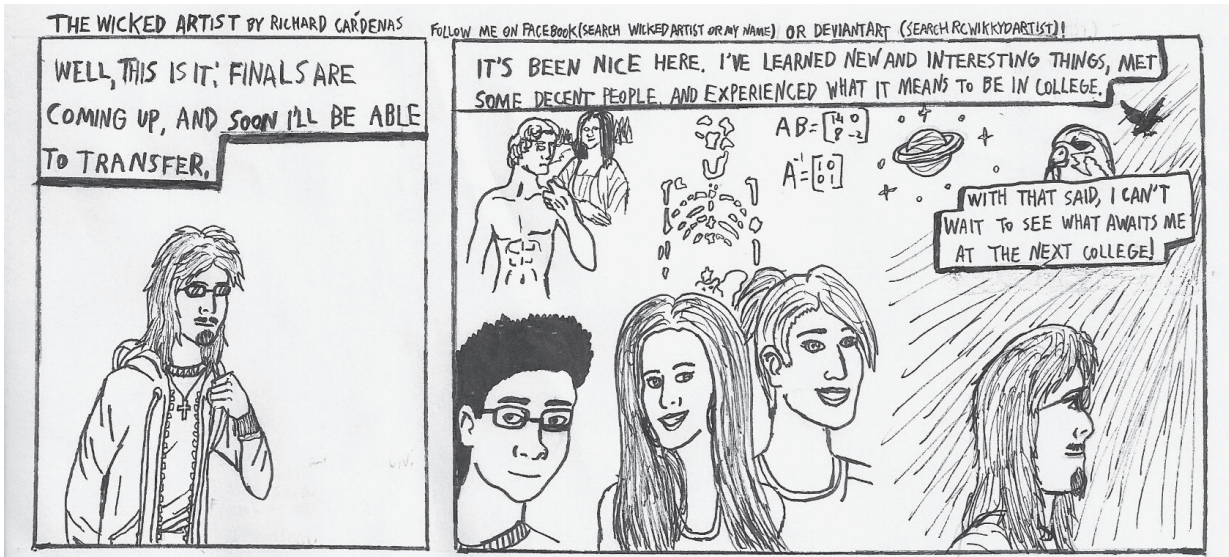 THE WICKED ARTIST BY RICHARD CÁRDENAS
FOLLOW ME ON FACEBOOK(SEARCH WICKED ARTIST OR MY NAME) OR DEVIANTART (SEARCH RCWIKKYDARTIST)!
WELL, THIS IS IT; FINALS ARE
COMING UP, AND SOON I'LL BE ABLE
TO TRANSFER.
IT'S BEEN NICE HERE. I'VE LEARNED NEW AND INTERESTING THINGS, MET
SOME DECENT PEOPLE AND EXPERIENCED WHAT IT MEANS TO BE IN COLLEGE.
AB=[14 0
8 -2]
A⁻¹=[1 0
0 1]
WITH THAT SAID, I CAN'T
WAIT TO SEE WHAT AWAITS ME
AT THE NEXT COLLEGE!